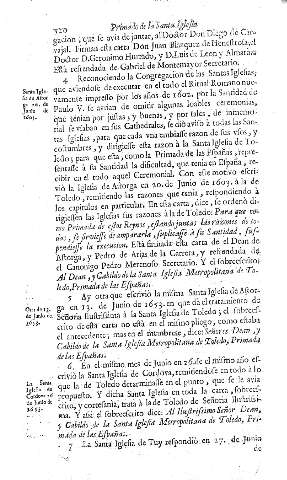 320 Primado de la Santa Iglesia
gacion, que se avia de juntar, al Doctor Don Diego de Car-
vajal. Firman esta carta Don Juan Blazquez de Henestrosa, el
Doctor D. Geronimo Hurtado, y D. Luis de Leon y Almaraz
Està refrendada de Gabriel de Montemayor Secretario.
4 Reconociendo la Congregacion de las Santas Iglesias;
que aviendose de executar en el todo el Ritual Romano nue-
vamente impresso por los años de 1602. por la Santidad de
Paulo V. se avian de omitir algunas loables ceremonias,
que tenian por justas, y buenas, y por tales, de inmemo-
rial se vsaban en sus Cathedrales, se escrivió à todas las San-
tas Iglesias, para que cada vna embiasse razon de sus vsos, y
costumbres, y dirigiesse esta razon à la Santa Iglesia de To-
ledo; para que esta, como la Primada de las Españas, repre-
sentasse à su Santidad la dificultad, que tenia en España, re-
cibir en el todo aquel Ceremonial. Con este motivo escri-
vió la Iglesia de Astorga en 20. de Junio de 1603. à la de
Toledo, remitiendo las razones que tenia, respondiendo à
los capitulos en particular. En esta carta, dice, se ordenó di-
rigiessen las Iglesias sus razones à la de Toledo: Para que co-
mo Primada de estos Reynos, estando juntas las razones de to-
dos, se sirviesse de ampararla, suplicasse à su Santidad, sus-
pendiesse la execucion. Està firmada esta carta de el Dean de
Astorga, y Pedro de Ariza de la Carrera, y refrendada de
el Canonigo Pedro Merenoso Secretario. Y el sobrescrito:
Al Dean, y Cabildo de la Santa Iglesia Metropolitana de To-
ledo, Primada de las Españas.
5 Ay otra que escribió la misma Santa Iglesia de Astor-
ga en 13. de Junio de 1653. en que dà el tratamiento de
Señoria Ilustrissima à la Santa Iglesia de Toledo; el sobrescri-
to de esta carta no està en el mismo pliego, como estaba
el antecedente; mas en el membrete, dice: Señores Dean, y
Cabildo de la Santa Iglesia Metropolitana de Toledo, Primada
de las Españas.
6. En el mismo mes de Junio en 26. de el mismo año es-
crivió la Santa Iglesia de Cordova, remitiendose en todo à lo
que la de Toledo determinasse en el punto, que se le avia
propuesto. Y dicha Santa Iglesia en toda la carta, sobrescri-
to, y cortesania, trata à la de Toledo de Señoria Ilustris-
sima. Y assi el sobrescrito dice: Al Ilustrissimo Señor Dean,
y Cabildo de la Santa Iglesia Metropolitana de Toledo, Pri-
mada de las Españas.
7 La Santa Iglesia de Tuy respondió en 27. de Junio
de
Santa Igle-
sia de Astor-
ga 20. de
Junio de
1603.
Otra de 13.
de Junio de
1653.
La Santa
Iglesia de
Cordova 26
de Junio de
1653.